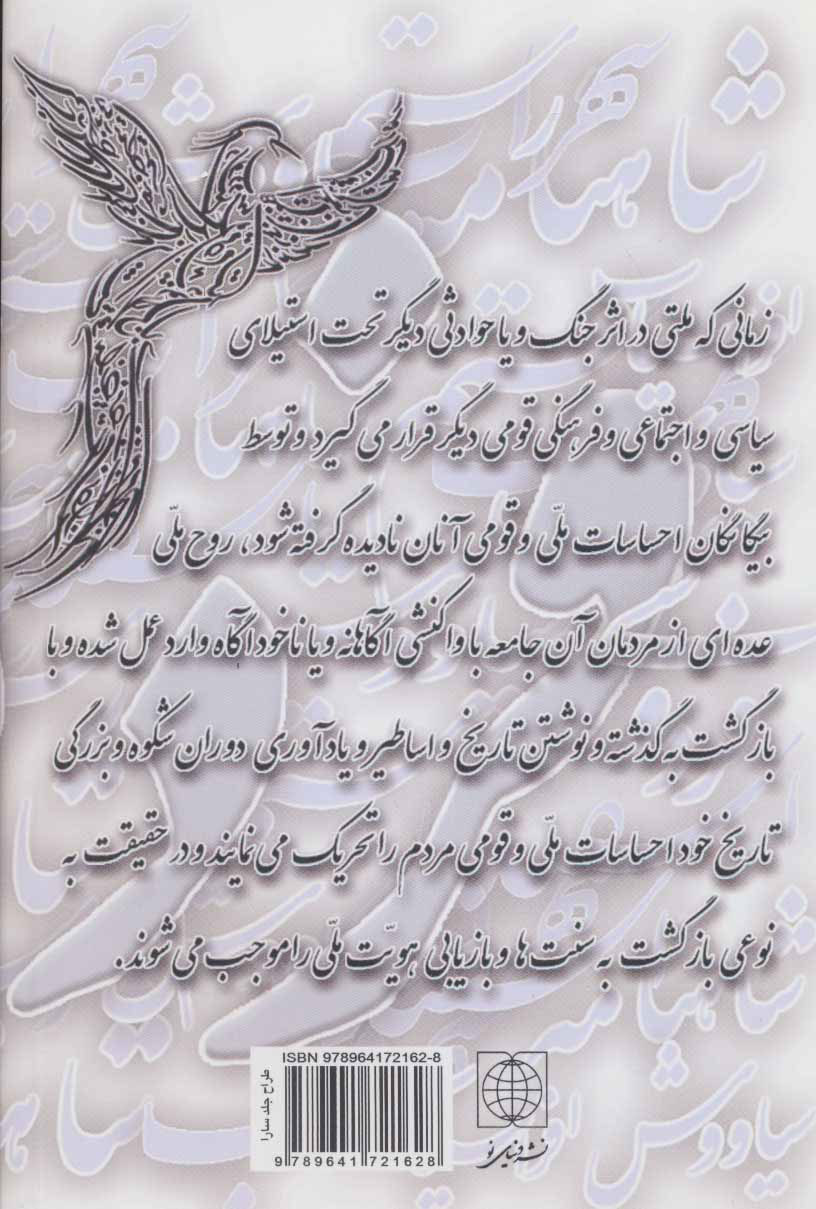 زمانی که ملتی در اثر جنگ و یا حوادثی دیگر تحت استیلای
سیاسی و اجتماعی و فرهنگی قومی دیگر قرار می گیرد و توسط
بیگانگان احساسات ملّی و قومی آنان نادیده گرفته شود، روح ملّی
عده ای از مردمان آن جامعه با واکنشی آگاهانه و یا ناخودآگاه وارد عمل شده و با
بازگشت به گذشته و نوشتن تاریخ و اساطیر و یادآوری دوران شکوه و بزرگی
تاریخ خود احساسات ملّی و قومی مردم را تحریک می نمایند و در حقیقت به
نوعی بازگشت به سنت ها و بازیابی هویّت ملّی را موجب می شوند.
ISBN 978964172162-8
طراح جلد سارا
9 789641 721628
نشر دنیای نو
شاهنامه
سیاووش